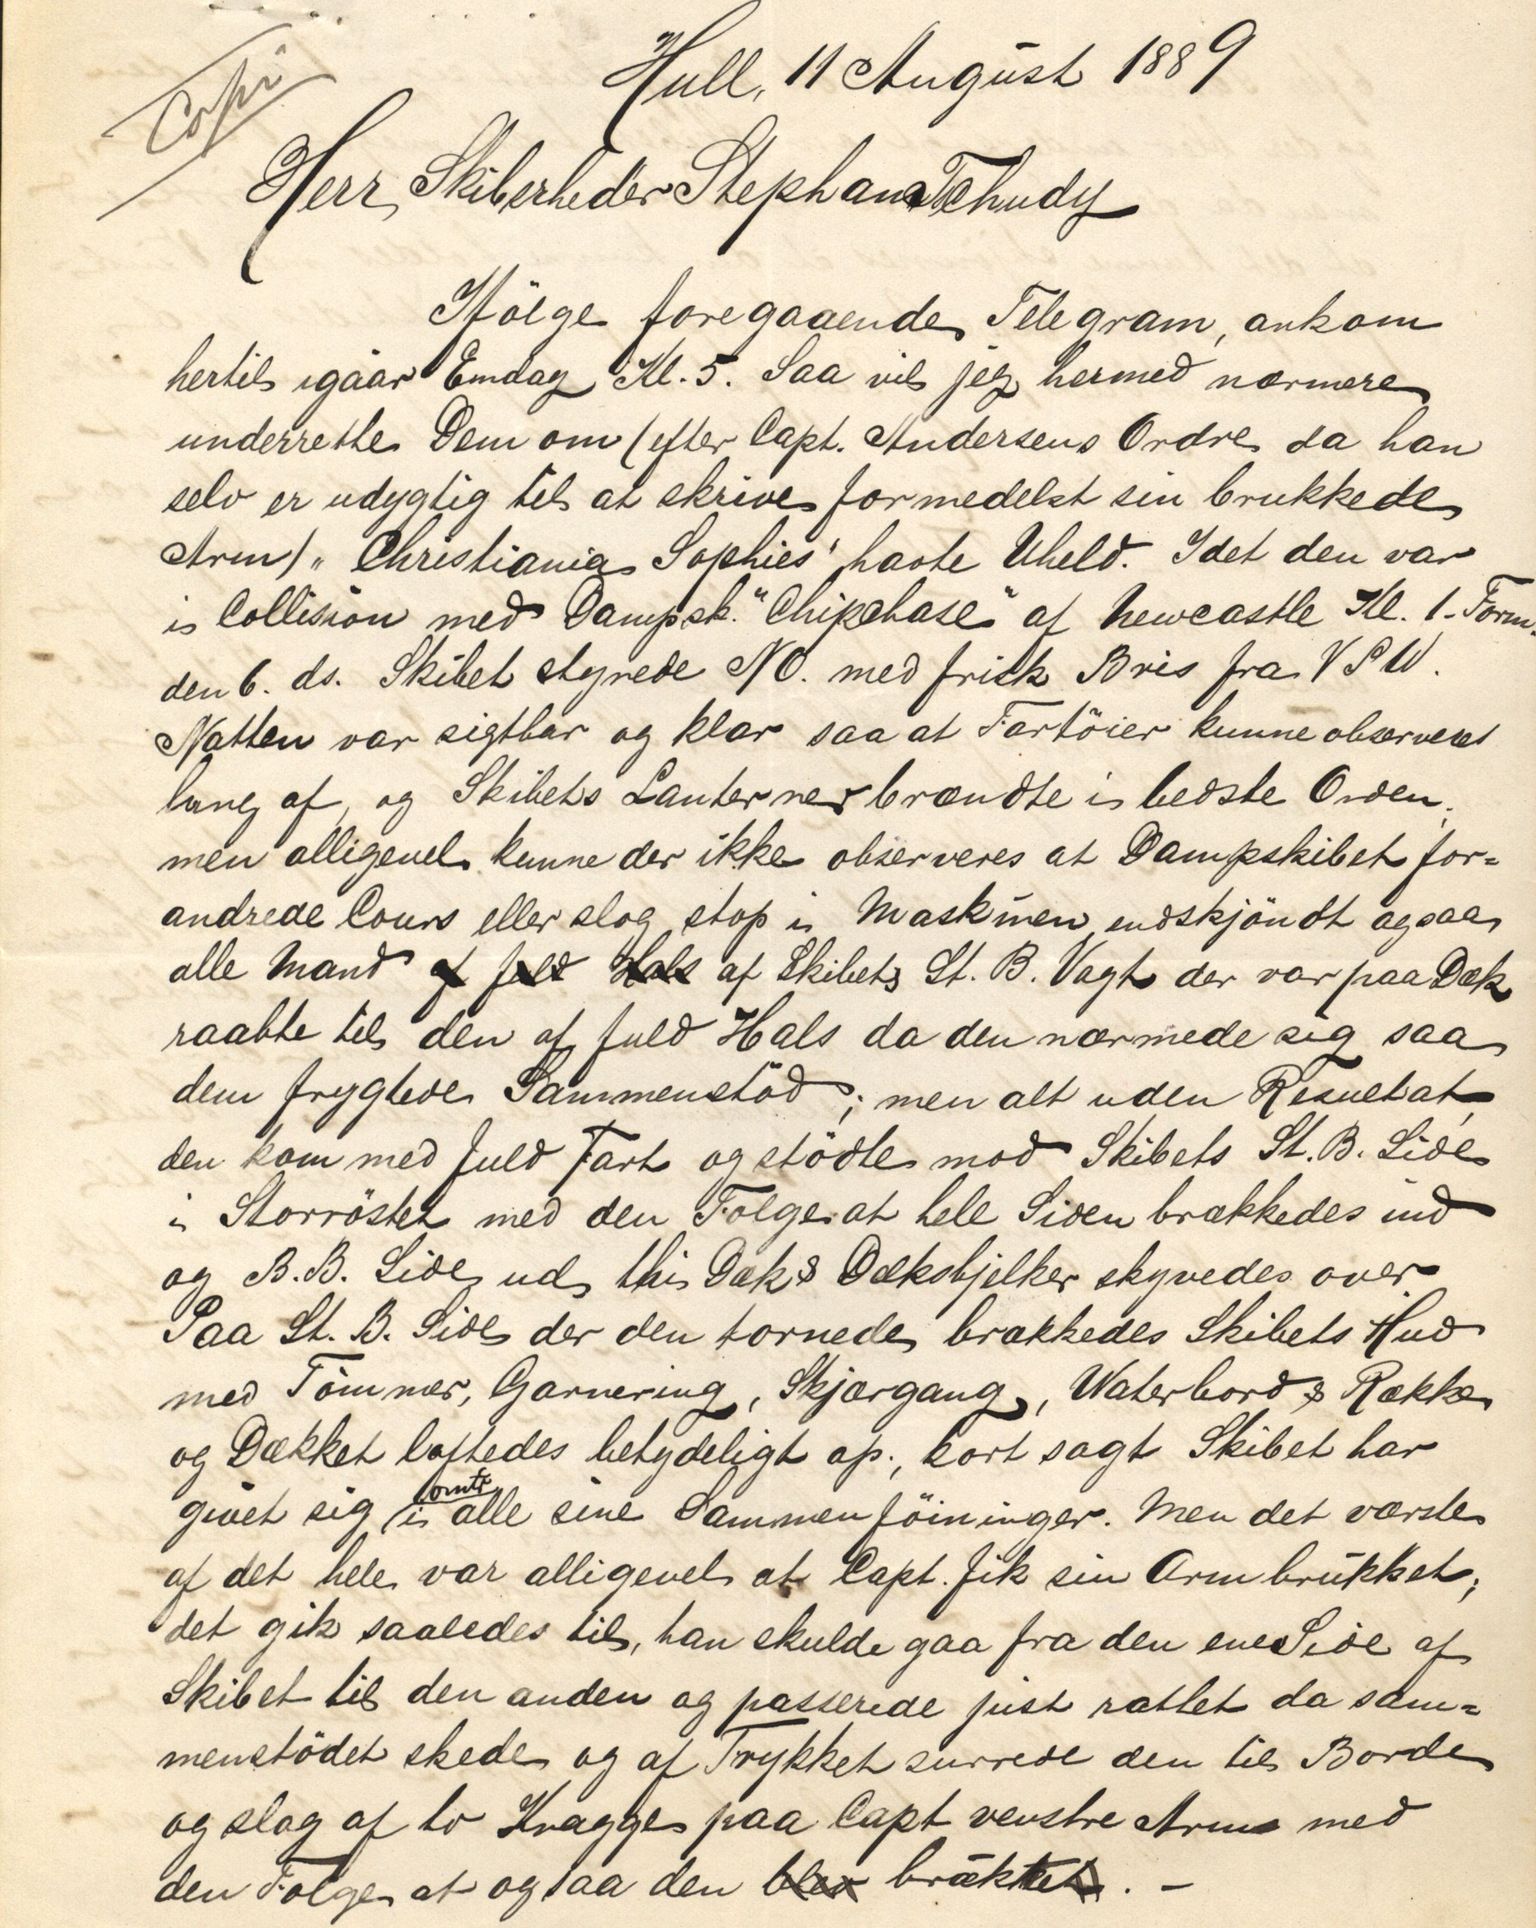 Copi
Hull, 11 August 1889
Herr Skibsrheder Stephan Tschudy
Ifölge foregaaende Telegram, ankom
hertil igaar Emdag Kl. 5. Saa vil jeg hermed nærmere
underrette Dem om (efter Capt. Andersens Ordre da han
selv er udygtig til at skrive formedelst sin brukkede
Arm) „Christiania Sophies" havte Uheld. Idet den var
i Collision med Dampsk. "Chipchase" af Newcastle Kl. 1 - Form.
den 6. ds. Skibet styrede NO. med frisk Bris fra VSW.
Natten var sigtbar og klar saa at Fartöier kunne observeres
lang af, og Skibets Lanterner brændte i bedste Orden,
men alligevel kunne der ikke observeres at Dampskibet for=
andrede Cours eller slog stop i Maskinen, endskjöndt ogsaa
alle Mand af fuld Hals af Skibets St. B. Vagt der var paa Dæk
raabte til den af fuld Hals da den nærmede sig saa
dem frygtede Sammenstöd; men alt uden Resultat,
den kom med fuld Fart og stödte mod Skibets St. B. Side
i Storröstet med den Folge at hele Siden brækkedes ind
og B.B. Side ud, thi Dæk & Dæksbjelker skyvedes over
Paa St. B. Side der den tornede, brækkedes Skibets Hud
med Tömmer, Garnering, Skjærgang, Waterbord & Række
og Dækket löftedes betydeligt op., kort sagt Skibet har
givet sig i omtr alle sine Sammenföininger. Men det værste
af det hele var alligevel at Capt. fik sin Arm brükket;
det gik saaledes til, han skulde gaa fra den ene Side af
Skibet til den anden og passerede just rattet da sam=
menstödet skede og af Trykket surrede den til Borde
og slog af to Knagge paa Capt venstre Arm med
den Folge at ogsaa den blev bräkket. -